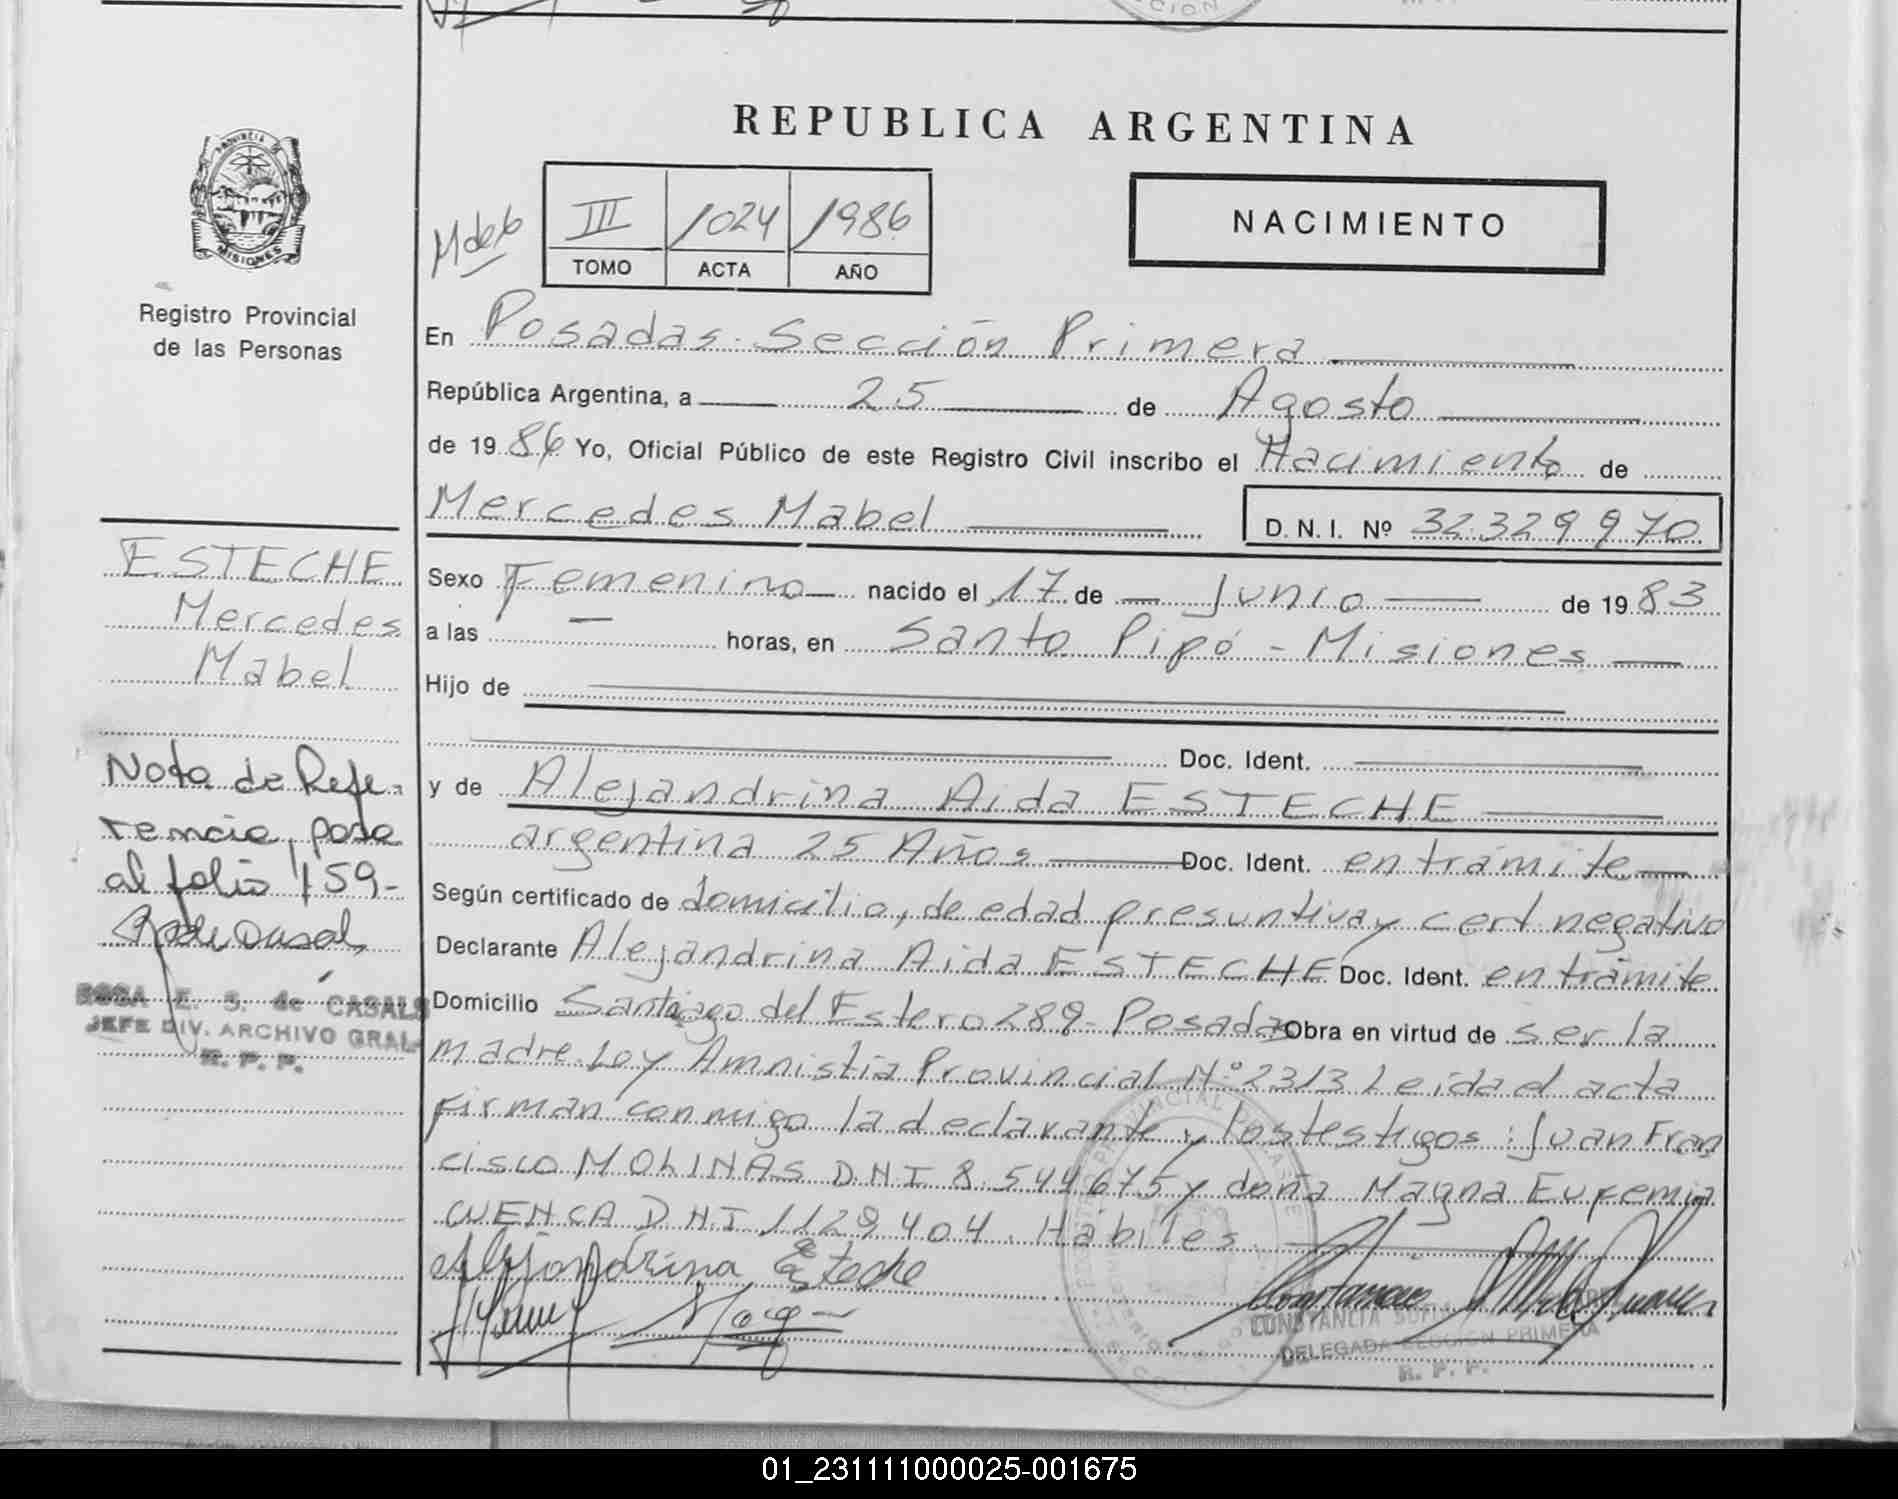 CCION
REPUBLICA ARGENTINA
PROVINCIA
MISIONES
III 1024 1986
TOMO ACTA AÑO
NACIMIENTO
Registro Provincial
de las Personas
En Posadas - Sección Primera
República Argentina, a 25 de Agosto
de 1986 Yo, Oficial Público de este Registro Civil inscribo el Nacimiento de
Mercedes Mabel D. N. I. Nº 32329970
ESTECHE
Mercedes
Mabel
Sexo Femenino nacido el 17 de Junio de 1983
a las — horas, en Santo Pipó - Misiones
Hijo de
Doc. Ident.
y de Alejandrina Aida ESTECHE
argentina 25 Años Doc. Ident. en trámite
Nota de Refe-
rencia, pasa
al folio 159-
ROSA E. S. de CASALS
JEFE DIV. ARCHIVO GRAL.
R. P. P.
Según certificado de domicilio, de edad presuntiva y cert negativo
Declarante Alejandrina Aida ESTECHE Doc. Ident. en trámite
Domicilio Santiago del Estero 289 - Posadas Obra en virtud de ser la
madre. Ley Amnistía Provincial Nº 2313 Leída el acta
firman conmigo la declarante y los testigos: Juan Fran
cisco MOLINAS D.N.I 8.544675 y doña Magna Eufemia
CUENCA D.N.I 1129404. Hábiles.
Alejandrina Esteche
CONSTANCIA
DELEGADA SECCION PRIMERA
R. P. P.
01_231111000025-001675